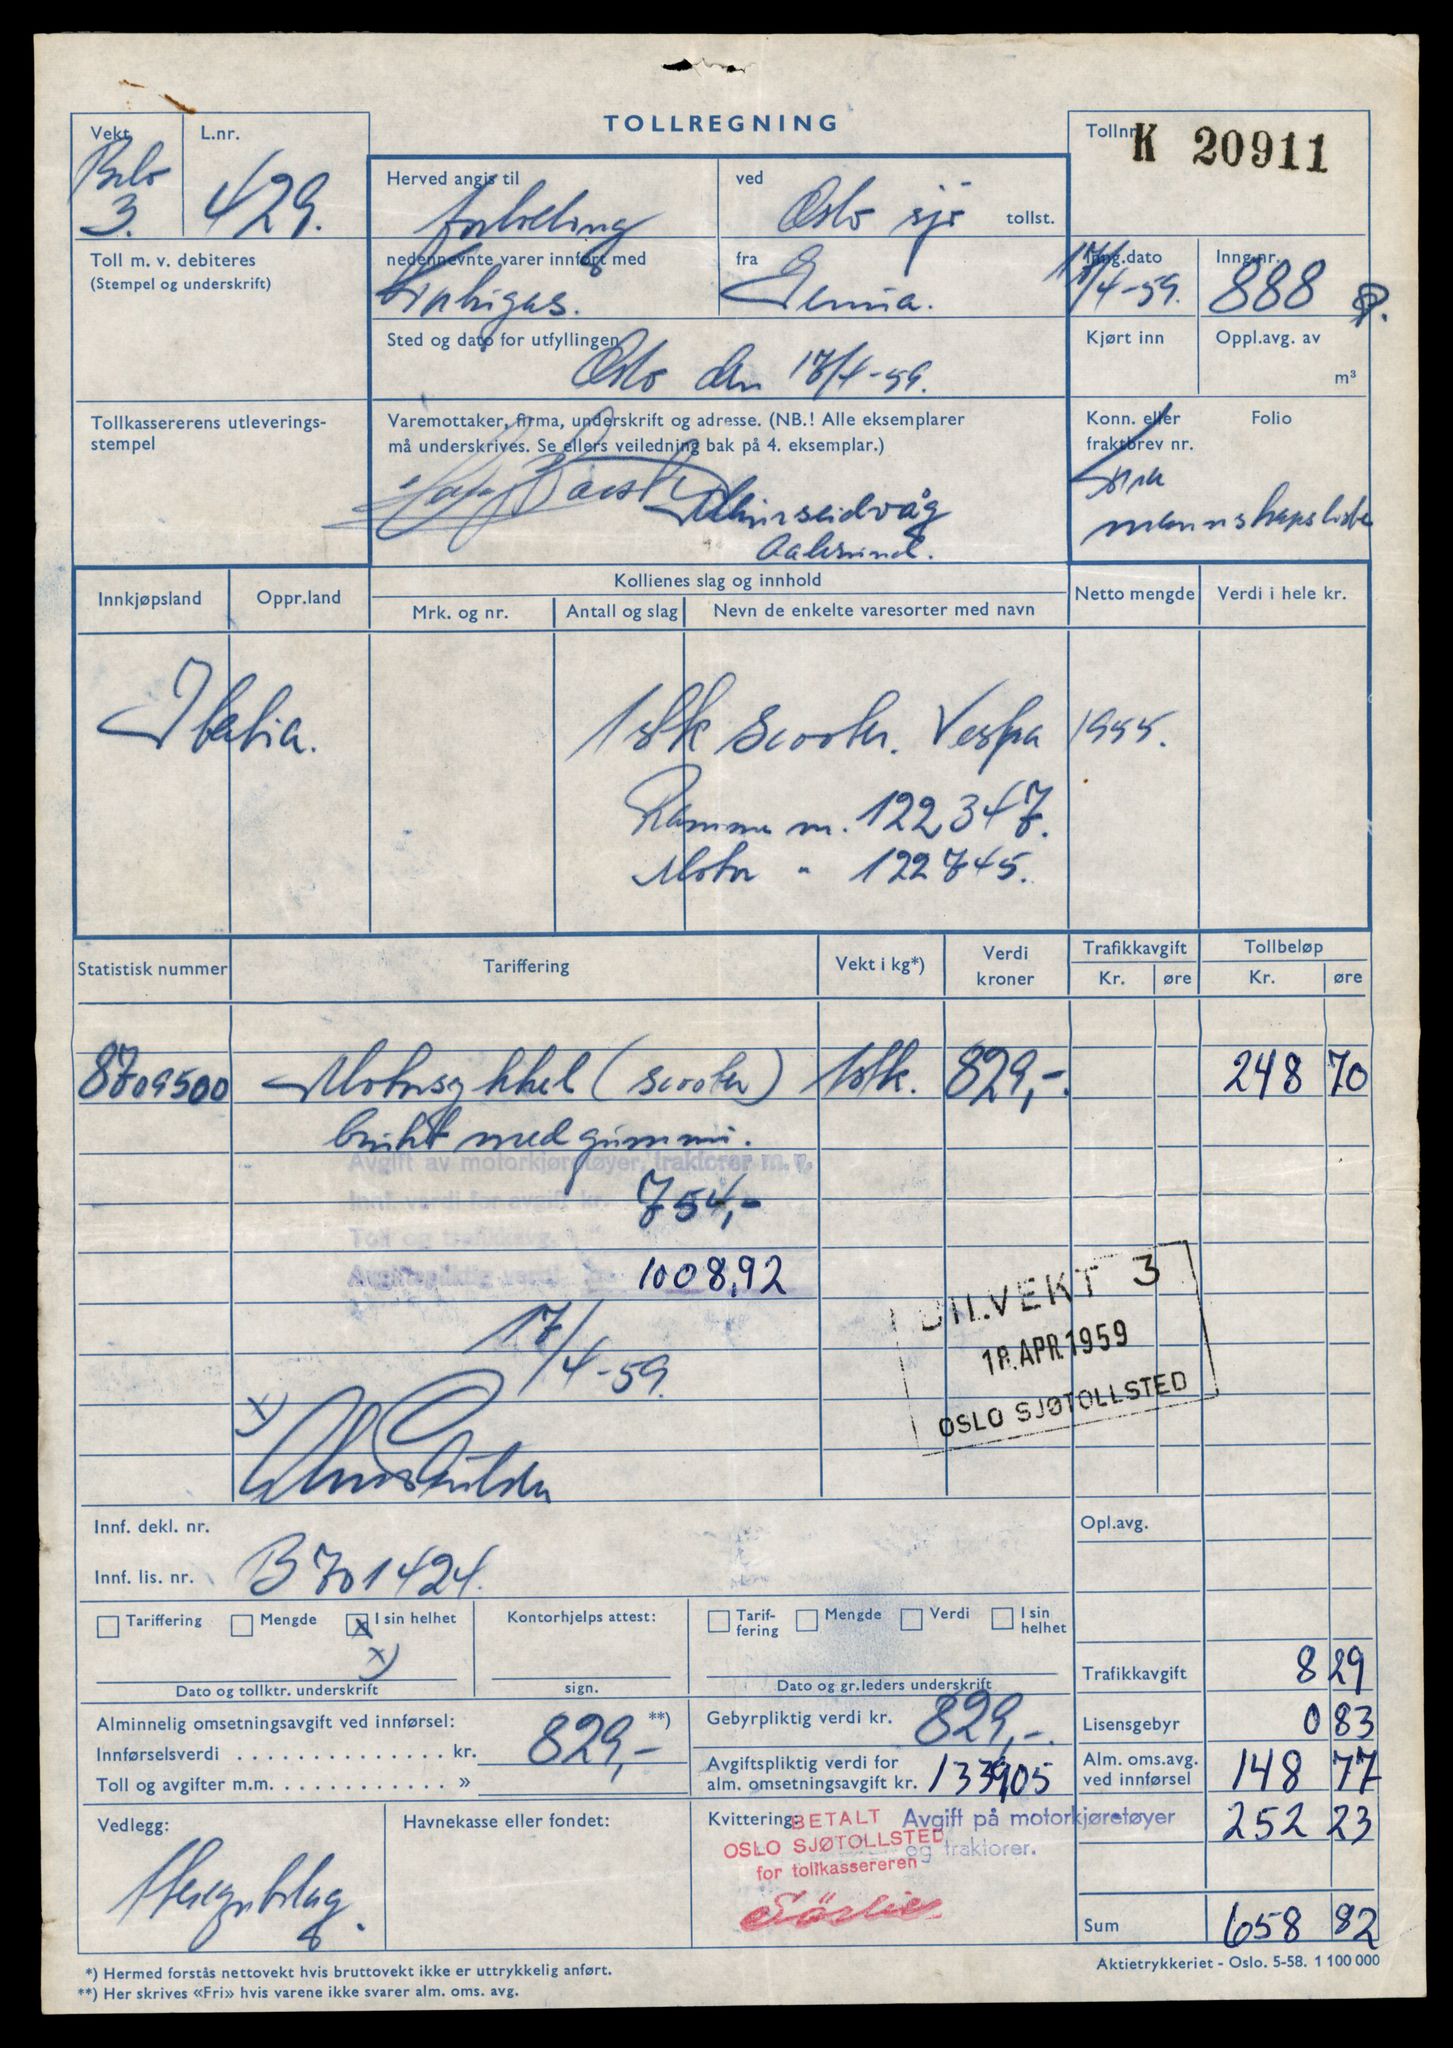 TOLLREGNING
Vekt
3.
L.nr.
429.
Tollnr.
K 20911
Herved angis til
fortolling
ved
Oslo sjø tollst.
Toll m. v. debiteres
(Stempel og underskrift)
nedennevnte varer innført med
fra
Genua.
Inng.dato
17/4-59.
Inng.nr.
888
Sted og dato for utfyllingen
Oslo den 17/4-59.
Kjørt inn
Oppl.avg. av
m³
Tollkassererens utleverings-
stempel
Varemottaker, firma, underskrift og adresse. (NB.! Alle eksemplarer
må underskrives. Se ellers veiledning bak på 4. eksemplar.)
Aalesund.
Konn. eller
fraktbrev nr.
Folio
mannskapsliste
Innkjøpsland
Oppr.land
Kollienes slag og innhold
Mrk. og nr.
Antall og slag
Nevn de enkelte varesorter med navn
Netto mengde
Verdi i hele kr.
Italia.
1 stk scooter. Vespa 1955.
Ramme nr. 122347.
Motor " 122745.
Statistisk nummer
Tariffering
Vekt i kg*)
Verdi
kroner
Trafikkavgift
Kr.
øre
Tollbeløp
Kr.
øre
8709500 Motorsykkel (scooter) 1 stk. 829,-. 248 70
brukt med gummi.
Avgift av motorkjøretøyer, traktorer m. v.
Innf. verdi for avgift kr. 754,-
Toll og trafikkavg.
Avgiftspliktig verdi kr. 1008,92
17/4-59.
x)
BILVEKT 3
18. APR. 1959
OSLO SJØTOLLSTED
Innf. dekl. nr.
Innf. lis. nr. B 701424.
Opl.avg.
Tariffering
Mengde
x I sin helhet
x)
Kontorhjelps attest:
Tarif-
fering
Mengde
Verdi
I sin
helhet
Dato og tollktr. underskrift
sign.
Dato og gr.leders underskrift
Trafikkavgift 8 29
Alminnelig omsetningsavgift ved innførsel:
Innførselsverdi . . . . . . . . . . . . . . . kr. 829,- **)
Toll og avgifter m.m. . . . . . . . . . . . . »
Gebyrpliktig verdi kr. 829,-.
Lisensgebyr 0 83
Avgiftspliktig verdi for
alm. omsetningsavgift kr. 133905
Alm. oms.avg.
ved innførsel 148 77
Vedlegg:
Havnekasse eller fondet:
Kvittering:
BETALT
OSLO SJØTOLLSTED
for tollkassereren
Avgift på motorkjøretøyer
og traktorer.
252 23
Sum 658 82
*) Hermed forstås nettovekt hvis bruttovekt ikke er uttrykkelig anført.
**) Her skrives «Fri» hvis varene ikke svarer alm. oms. avg.
Aktietrykkeriet - Oslo. 5-58. 1 100 000